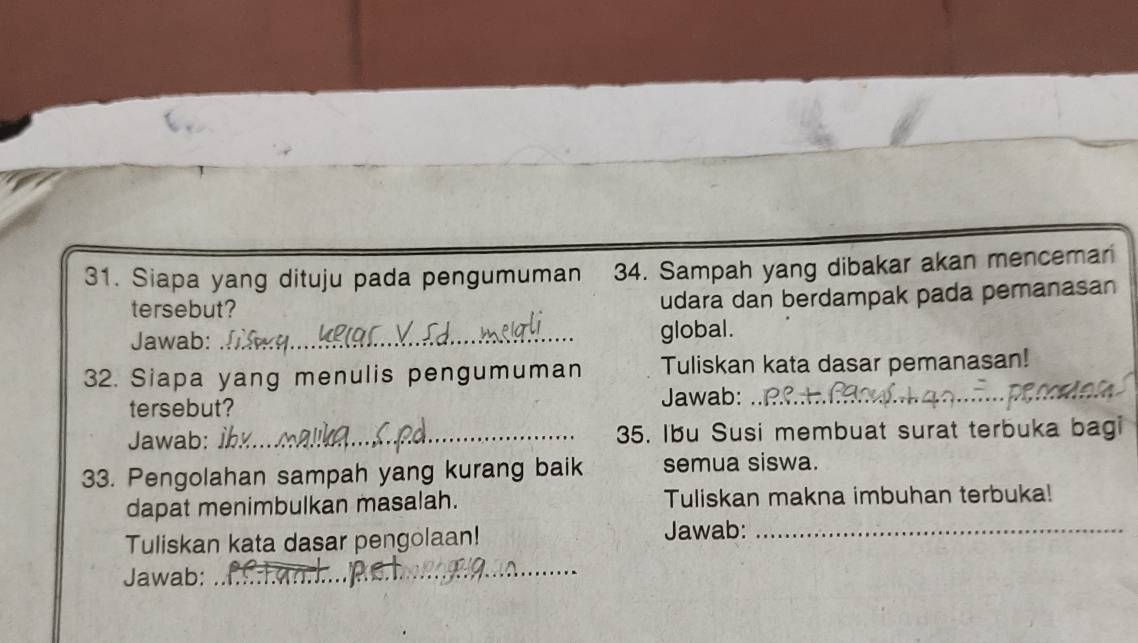 31. Siapa yang dituju pada pengumuman
tersebut?
Jawab: kelas V Sd melati
32. Siapa yang menulis pengumuman
tersebut?
Jawab: ibu malika S.pd
33. Pengolahan sampah yang kurang baik
dapat menimbulkan masalah.
Tuliskan kata dasar pengolaan!
Jawab:
34. Sampah yang dibakar akan mencemari
udara dan berdampak pada pemanasan
global.
Tuliskan kata dasar pemanasan!
Jawab: pe +
35. Ibu Susi membuat surat terbuka bagi
semua siswa.
Tuliskan makna imbuhan terbuka!
Jawab: